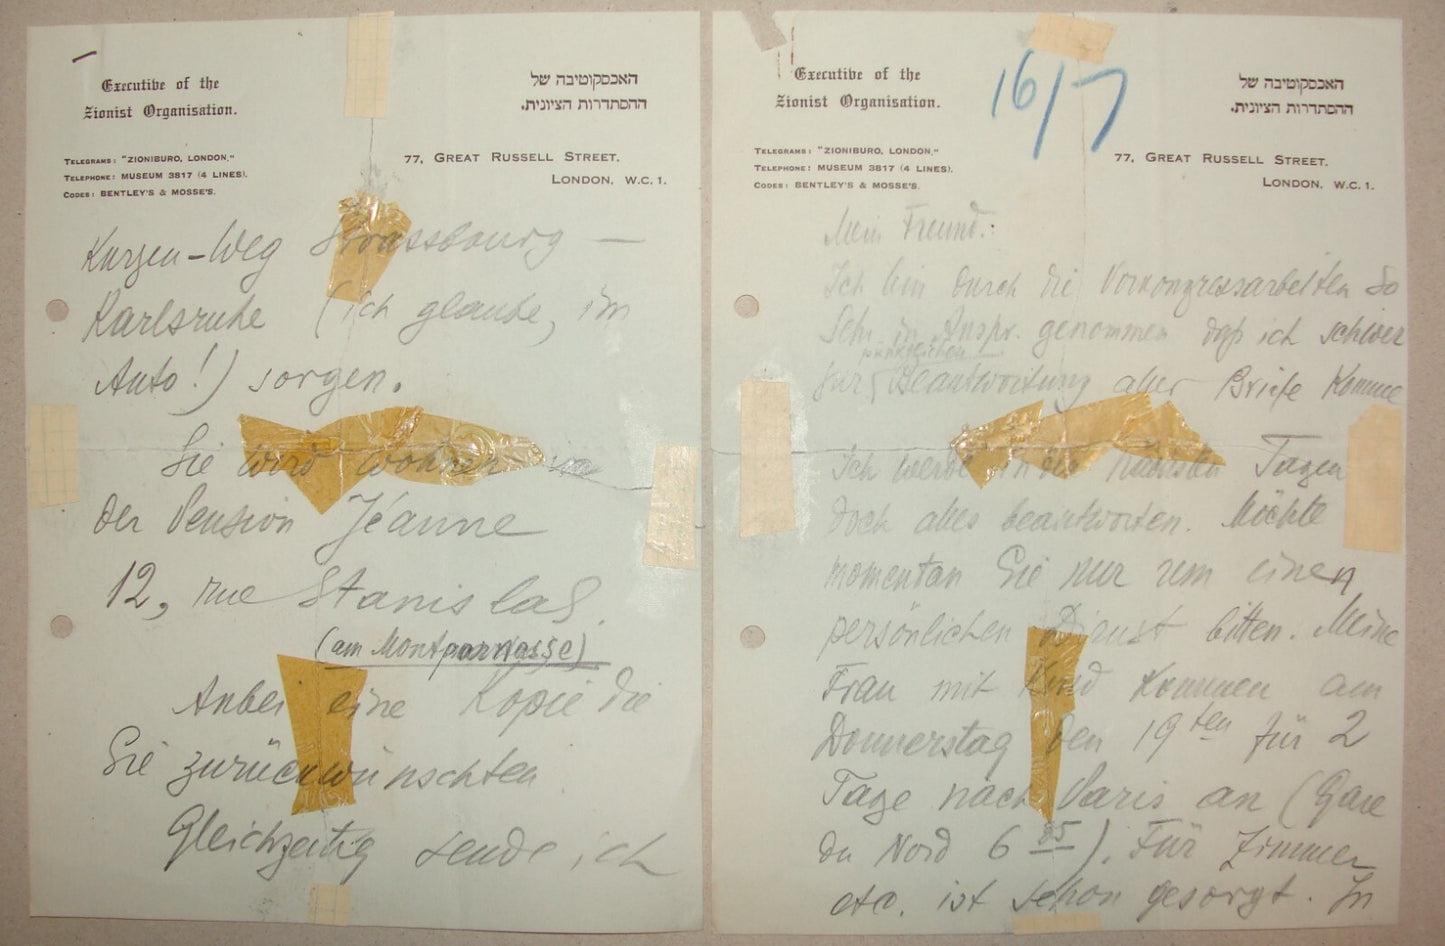 Executive of the
Zionist Organisation.
האכסקוטיבה של
ההסתדרות הציונית.
TELEGRAMS: "ZIONIBURO, LONDON."
TELEPHONE: MUSEUM 3817 (4 LINES).
CODES: BENTLEY'S & MOSSE'S.
77, GREAT RUSSELL STREET,
LONDON, W.C.1.
Kurzen-Weg Strassbourg —
Karlsruhe (ich glaube, im
Auto!) sorgen.
Sie wird wohnen
der Pension Jeanne
12, rue Stanislas.
(am Montparnasse)
Anbei eine Kopie die
Sie zurückwünschten
Gleichzeitig sende ich
Executive of the
Zionist Organisation.
16/7
האכסקוטיבה של
ההסתדרות הציונית.
TELEGRAMS: "ZIONIBURO, LONDON."
TELEPHONE: MUSEUM 3817 (4 LINES).
CODES: BENTLEY'S & MOSSE'S.
77, GREAT RUSSELL STREET,
LONDON, W.C.1.
Mein Freund.
Ich bin durch die Vorkongressarbeiten so
sehr in Anspr. genommen daß ich schwer
pünktlichen
zur Beantwortung aller Briefe komme
Ich werde in den nächsten Tagen
doch alles beantworten. Möchte
momentan Sie nur um einen
persönlichen Dienst bitten. Meine
Frau mit Kind kommen am
Donnerstag den 19ten für 2
Tage nach Paris an (Gare
du Nord 6 ). Für Zimmer
etc. ist schon gesorgt. In